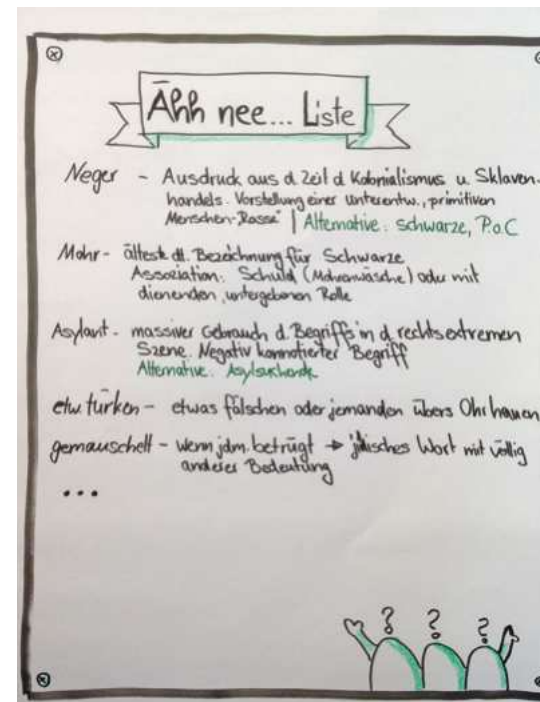 Ähh nee... Liste
Neger - Ausdruck aus d Zeit d Kolonialismus u. Sklaven-
handels. Vorstellung einer unterentw., primitiven
Menschen-"Rasse" | Alternative: schwarze, P.o.C
Mohr - älteste dt. Bezeichnung für Schwarze
Assoziation: Schuld (Mohrenwäsche) oder mit
dienenden, untergebenen Rolle
Asylant - massiver Gebrauch d. Begriffs in d. rechtsextremen
Szene. Negativ konnotierter Begriff
Alternative: Asylsuchende
etw. türken - etwas fälschen oder jemanden übers Ohr hauen
gemauschelt - wenn jdm. betrügt → jüdisches Wort mit völlig
anderer Bedeutung
...
? ? ?